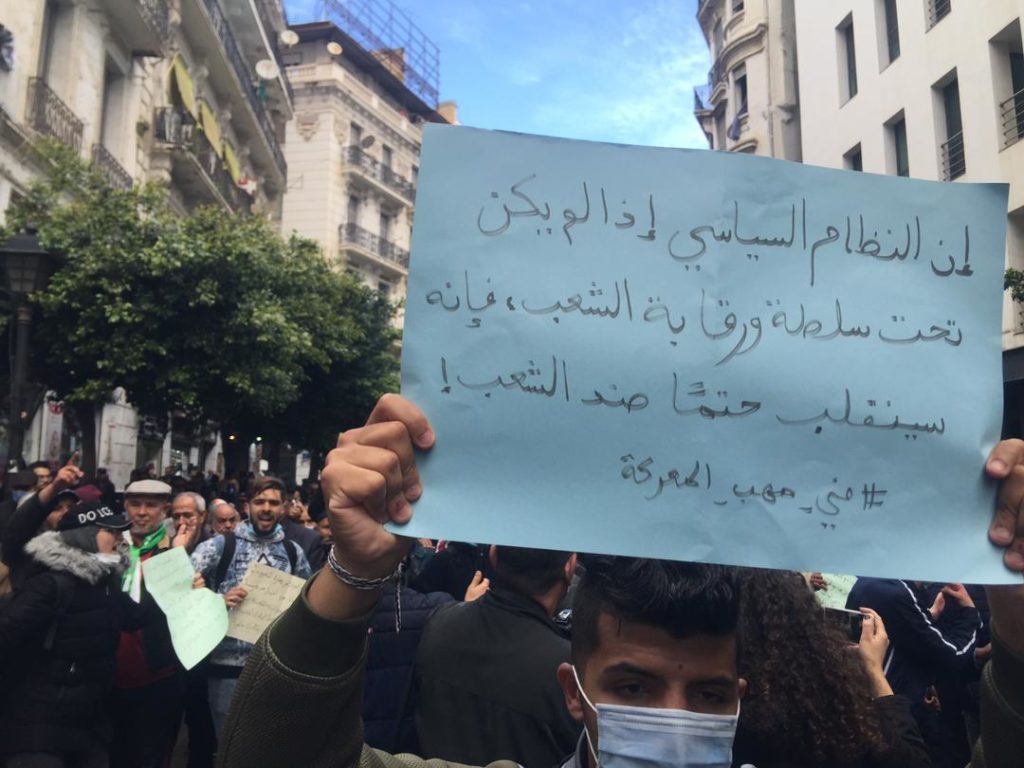 إن النظام السياسي إذا لم يكن
تحت سلطة ورقابة الشعب، فإنه
سينقلب حتمًا ضد الشعب!
#في_مهب_المعركة